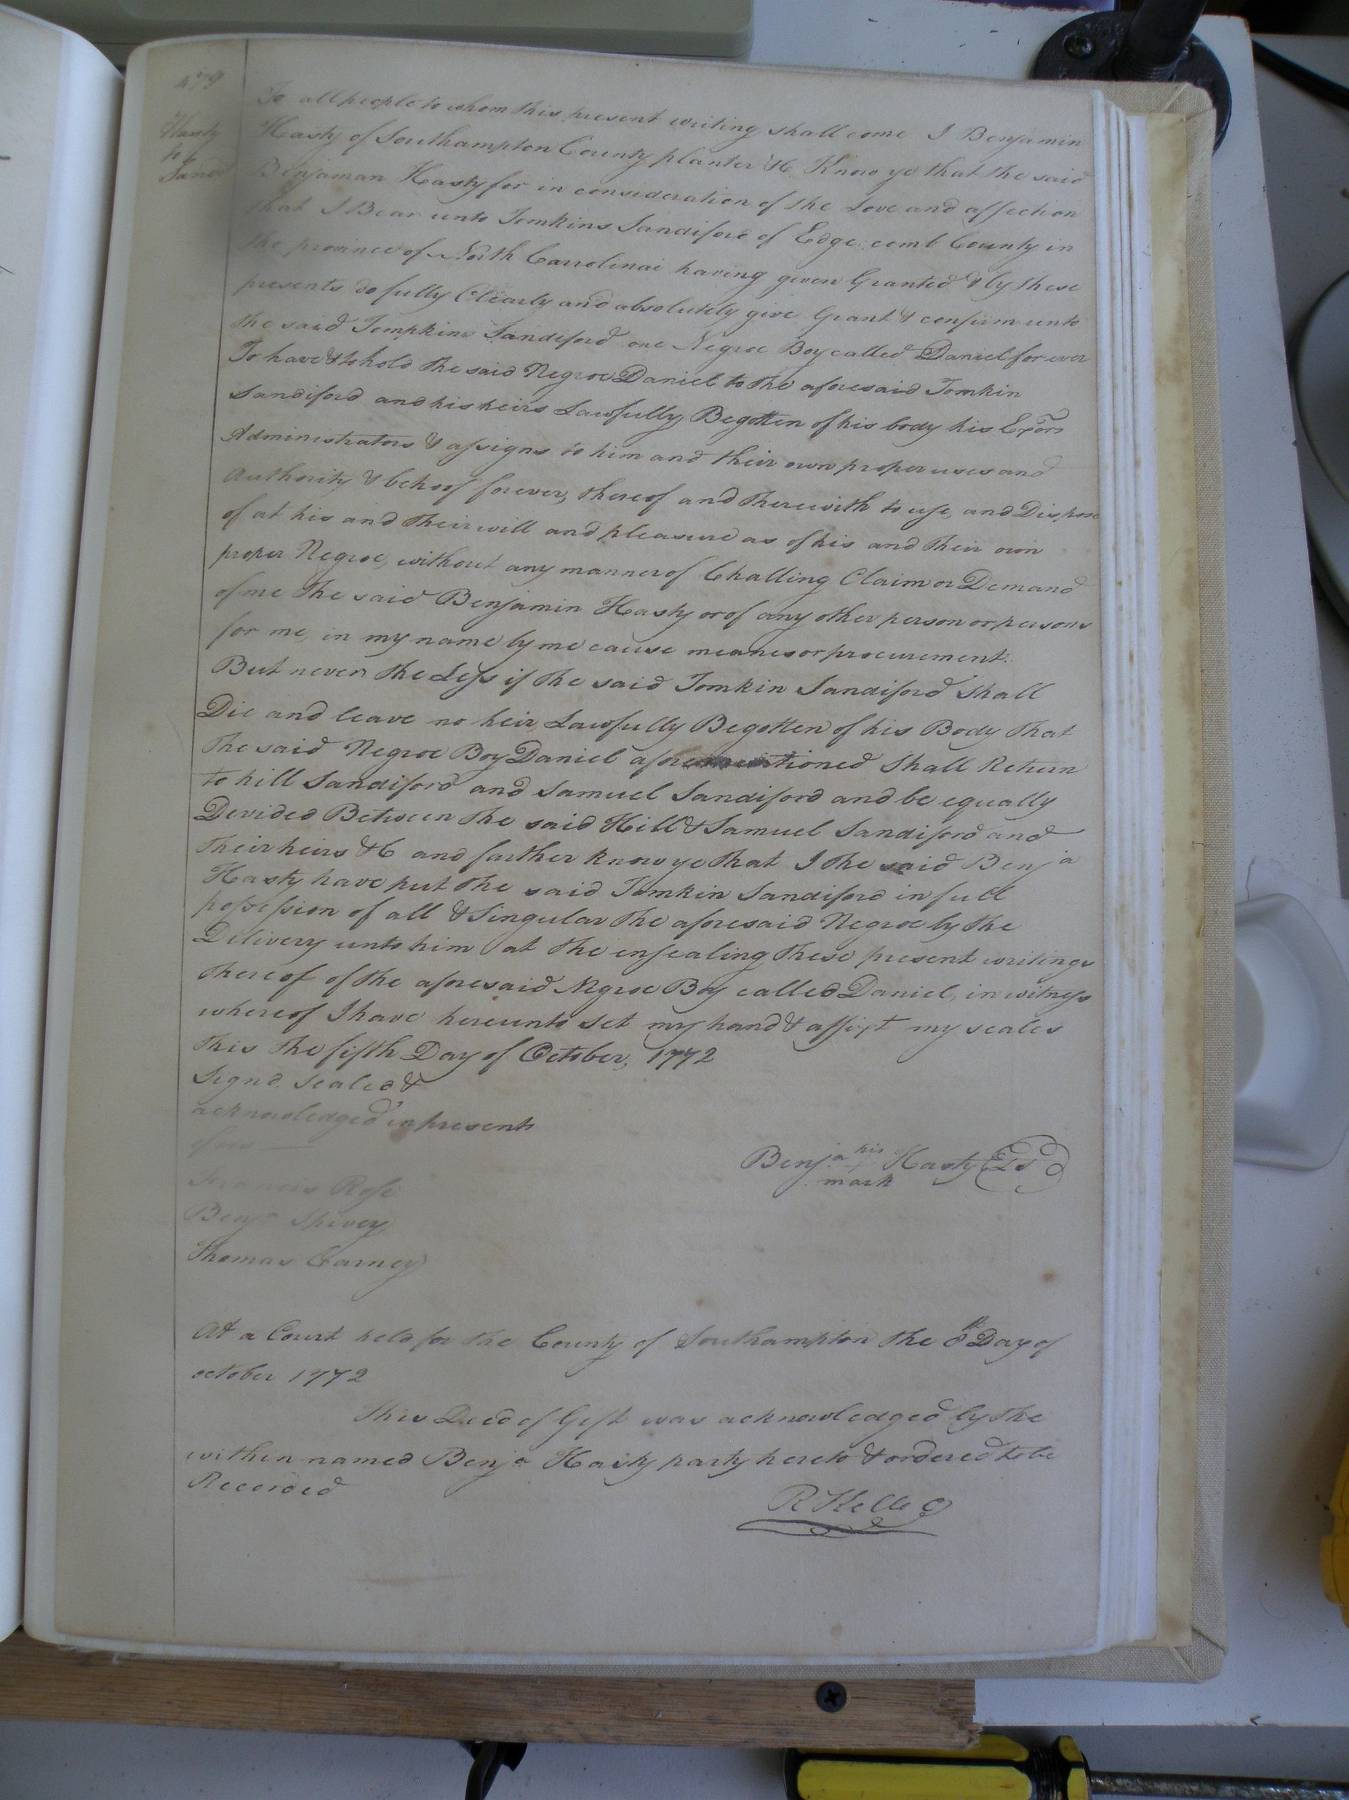 479
Hasty
to
Sand
To all people to whom this present writing shall come I Benjamin
Hasty of Southampton County planter &c Know ye that the said
Benjaman Hasty for in consideration of the Love and affection
that I Bear unto Tomkins Sandiford of Edge comb County in
the province of North Carrolinai having given Granted & by these
presents do fully Clearly and absolutely give Grant & confirm unto
the said Tompkins Sandiford one Negroe Boy called Daniel for ever
To have & to hold the said Negroe Daniel to the aforesaid Tomkin
Sandiford and his heirs Lawfully Begotten of his body his Exors
Administrators & assigns to him and their own proper uses and
Authority & behoof forever, thereof and therewith to use, and Dispose
of at his and their will and pleasure as of his and their own
proper Negroe, without any manner of Challing Claim or Demand
of me the said Benjamin Hasty or of any other person or persons
for me, in my name by me cause meanes or procurement.
But never the Less if the said Tomkin Sandiford shall
Die and leave no heir Lawfully Begotten of his Body that
the said Negroe Boy Daniel aforementioned shall Return
to hill Sandiford and Samuel Sandiford and be equally
Devided Between the said Hill & Samuel Sandiford and
their heirs &c and further know ye that I the said Benja
Hasty have put the said Tomkin Sandiford in full
possession of all & Singular the aforesaid Negroe by the
Delivery unto him at the ensealing these present writings
thereof of the aforesaid Negroe Boy called Daniel, in witness
whereof I have hereunto set my hand & affixt my seales
this the fifth Day of October, 1772
Signd Sealed &
acknowledged in presents
of us
Benja his Hasty LS
mark
Rose
Benja Spivey
Thomas Carney
At a Court held for the County of Southampton the 8th Day of
october 1772
This Deed of Gift was acknowledged by the
within named Benja Hasty party hereto & ordered to be
Recorded
R Kello C